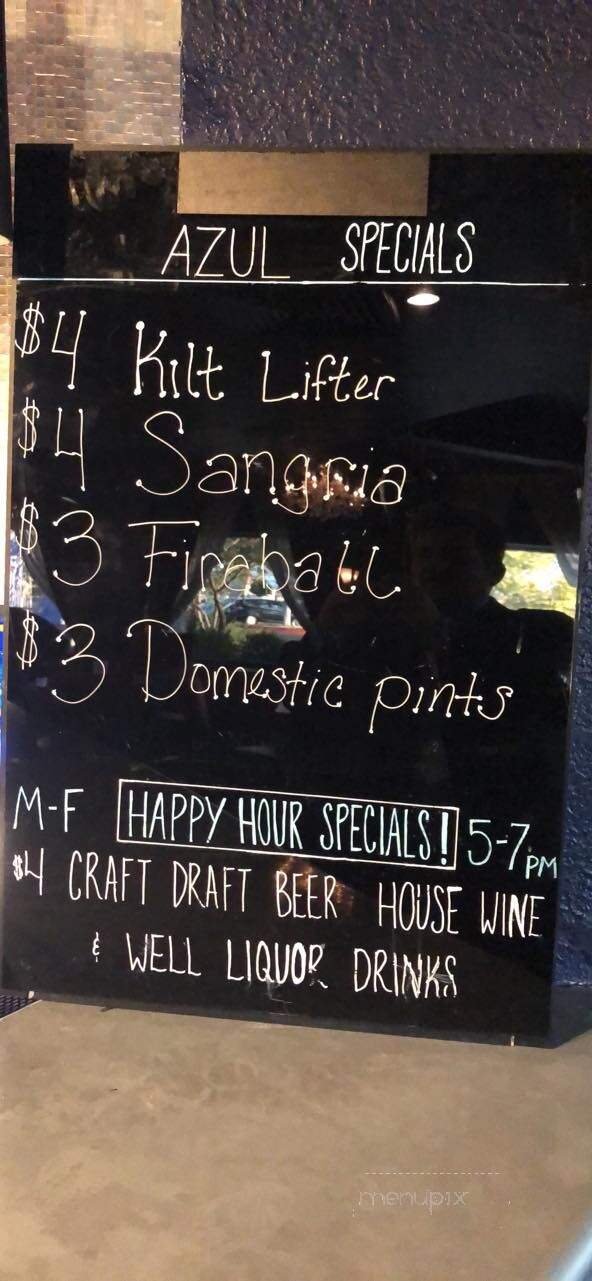 AZUL SPECIALS
$4 Kilt Lifter
$4 Sangria
$3 Fireball
$3 Domestic pints
M-F HAPPY HOUR SPECIALS! 5-7PM
$4 CRAFT DRAFT BEER HOUSE WINE
& WELL LIQUOR DRINKS
menupix